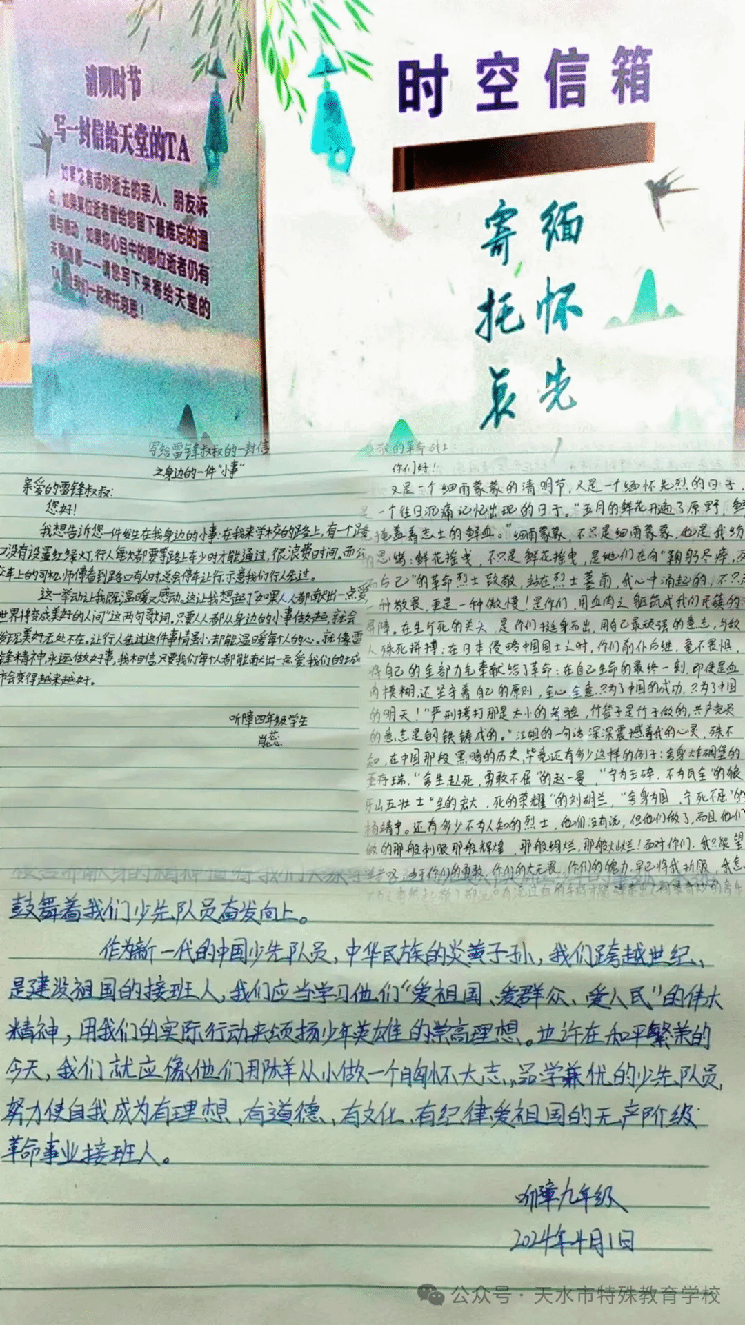 清明时节
写一封信给天堂的TA
如果您有话对逝去的亲人、朋友诉
说,如果某位逝者曾给您留下最难忘的温
暖与感动,如果您心目中的哪位逝者仍有
请您写下来寄给天堂的
TA,让我们一起寄托哀思!
时空信箱
缅怀先
寄托哀
写给雷锋叔叔的一封信
之身边的一件“小事”
亲爱的雷锋叔叔:
您好!
我想告诉您一件发生在我身边的小事:在我来学校的路上,有一个路
口没有设置红绿灯,行人每次都要等路上车少时才能通过,很浪费时间。而公
交车上的司机师傅看到路口有人时总会停车让行,示意我们行人先过。
这一举动让我既温暖又感动。这让我想起了“如果人人都献出一点爱
世界将变成美好的人间”这两句歌词。只要人人都从身边的小事做起,就会
发现美好无处不在,让行人先过这件事情虽小,却能温暖每个人的心。就像雷
锋精神永远做好事,我相信只要我们每个人都能献出一点爱,我们的城
市会变得越来越好。
听障四年级学生
你们好!
又是一个细雨蒙蒙的清明节,又是一个缅怀先烈的日子,
一个往日沉痛记忆出现的日子。“五月的鲜花开遍了原野,鲜
掩盖着志士的鲜血。”细雨蒙蒙,不只是细雨蒙蒙,也是我纷
的思绪;鲜花摇曳,不只是鲜花摇曳,是她们在向“鞠躬尽瘁,死
而后已”的革命烈士致敬,站在烈士墓前,我心中涌起的,不只
一种敬畏,更是一种傲慢!是你们,用血肉之躯筑成我们民族的
屏障。在生与死的关头,是你们挺身而出,用自己最顽强的意志,与敌
人殊死拼搏;在日本侵略中国国土之时,你们前仆后继,毫不畏惧,
将自己的全部力气奉献给了革命;在自己生命的最后一刻,即使是血
肉模糊,还坚守着自己的原则,全心全意,只为了中国的成功,只为了中国
的明天!“严刑拷打那是太小的考验,竹签子是竹子做的,共产党员
的意志是钢铁铸成的。”江姐的一句话深深震撼着我的心灵,殊不
知,在中国那段黑暗的历史,毕竟还有多少这样的例子:舍身炸碉堡的
董存瑞,“舍生赴死,勇敢不屈”的赵一曼,“宁为玉碎,不为瓦全”的狼
牙山五壮士,“生的伟大,死的荣耀”的刘胡兰,“舍身为国,宁死不屈”的
杨靖宇。还有多少不为人知的烈士,他们没有说,但他们做了,而且他们
做的那般利服那般辉煌,那般绚烂,那般灿烂!面对你们,我只能望
鼓舞着我们少先队员奋发向上。
作为新一代的中国少先队员,中华民族的炎黄子孙,我们跨越世纪、
是建设祖国的接班人,我们应当学习他们“爱祖国、爱群众、爱人民”的伟大
精神,用我们的实际行动来颂扬少年英雄的崇高理想。也许在和平繁荣的
今天,我们就应像他们那样从小做一个胸怀大志,品学兼优的少先队员,
努力使自我成为有理想、有道德、有文化、有纪律、爱祖国的无产阶级
革命事业接班人。
听障九年级
2024年4月1日
公众号·天水市特殊教育学校